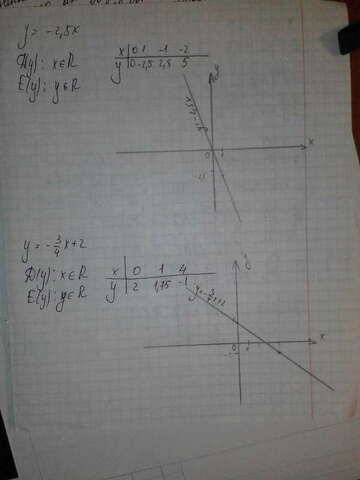 y = -2,5x
D(y): x∈R
E(y): y∈R
x | 0 1 -1 -2
y | 0 -2,5 2,5 5
y
x
0 1
y = -3/4x+2
D(y): x∈R
E(y): y∈R
x | 0 1 4
y | 2 1,75 -1
y
y=-3/4x+2
x
0 1